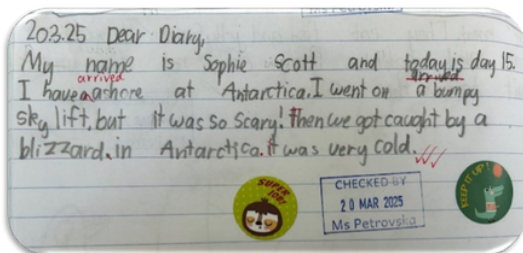 203.25 Dear Diary,
My name is Sophie Scott and today is day 15.
arrived arrived
I have ashore at Antarctica. I went on a bumpy
sky lift, but it was so scary! Then we got caught by a
blizzard. in Antarctica. it was very cold.
SUPER JOB!
CHECKED BY
20 MAR 2025
Ms Petrovska
KEEP IT UP!